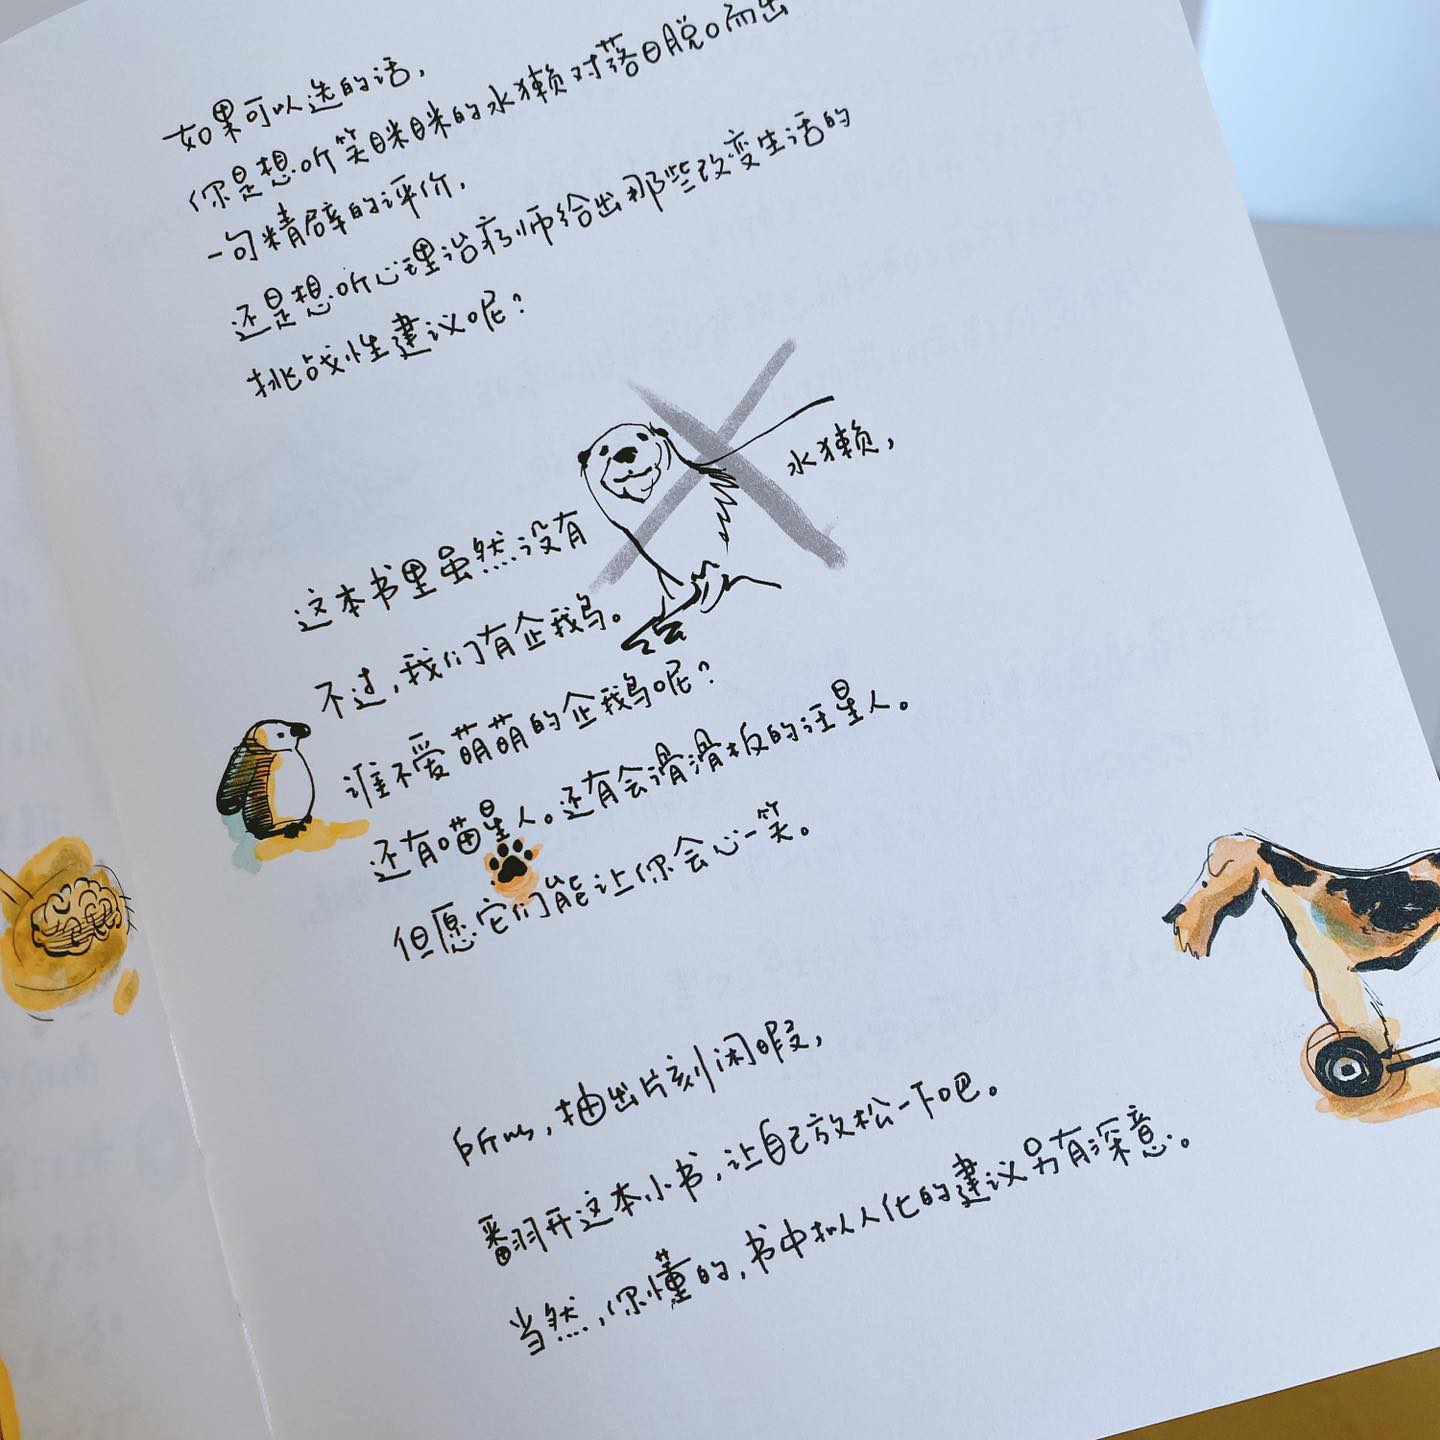 如果可以选的话，
你是想听笑眯眯的水獭对落日脱口而出
一句精辟的评价，
还是想听心理治疗师给出那些改变生活的
挑战性建议呢？
这本书里虽然没有
水獭，
不过，我们有企鹅。
谁不爱萌萌的企鹅呢？
还有喵星人。还有会滑滑板的汪星人。
但愿它们能让你会心一笑。
所以，抽出片刻闲暇，
翻开这本小书，让自己放松一下吧。
当然，你懂的，书中拟人化的建议另有深意。